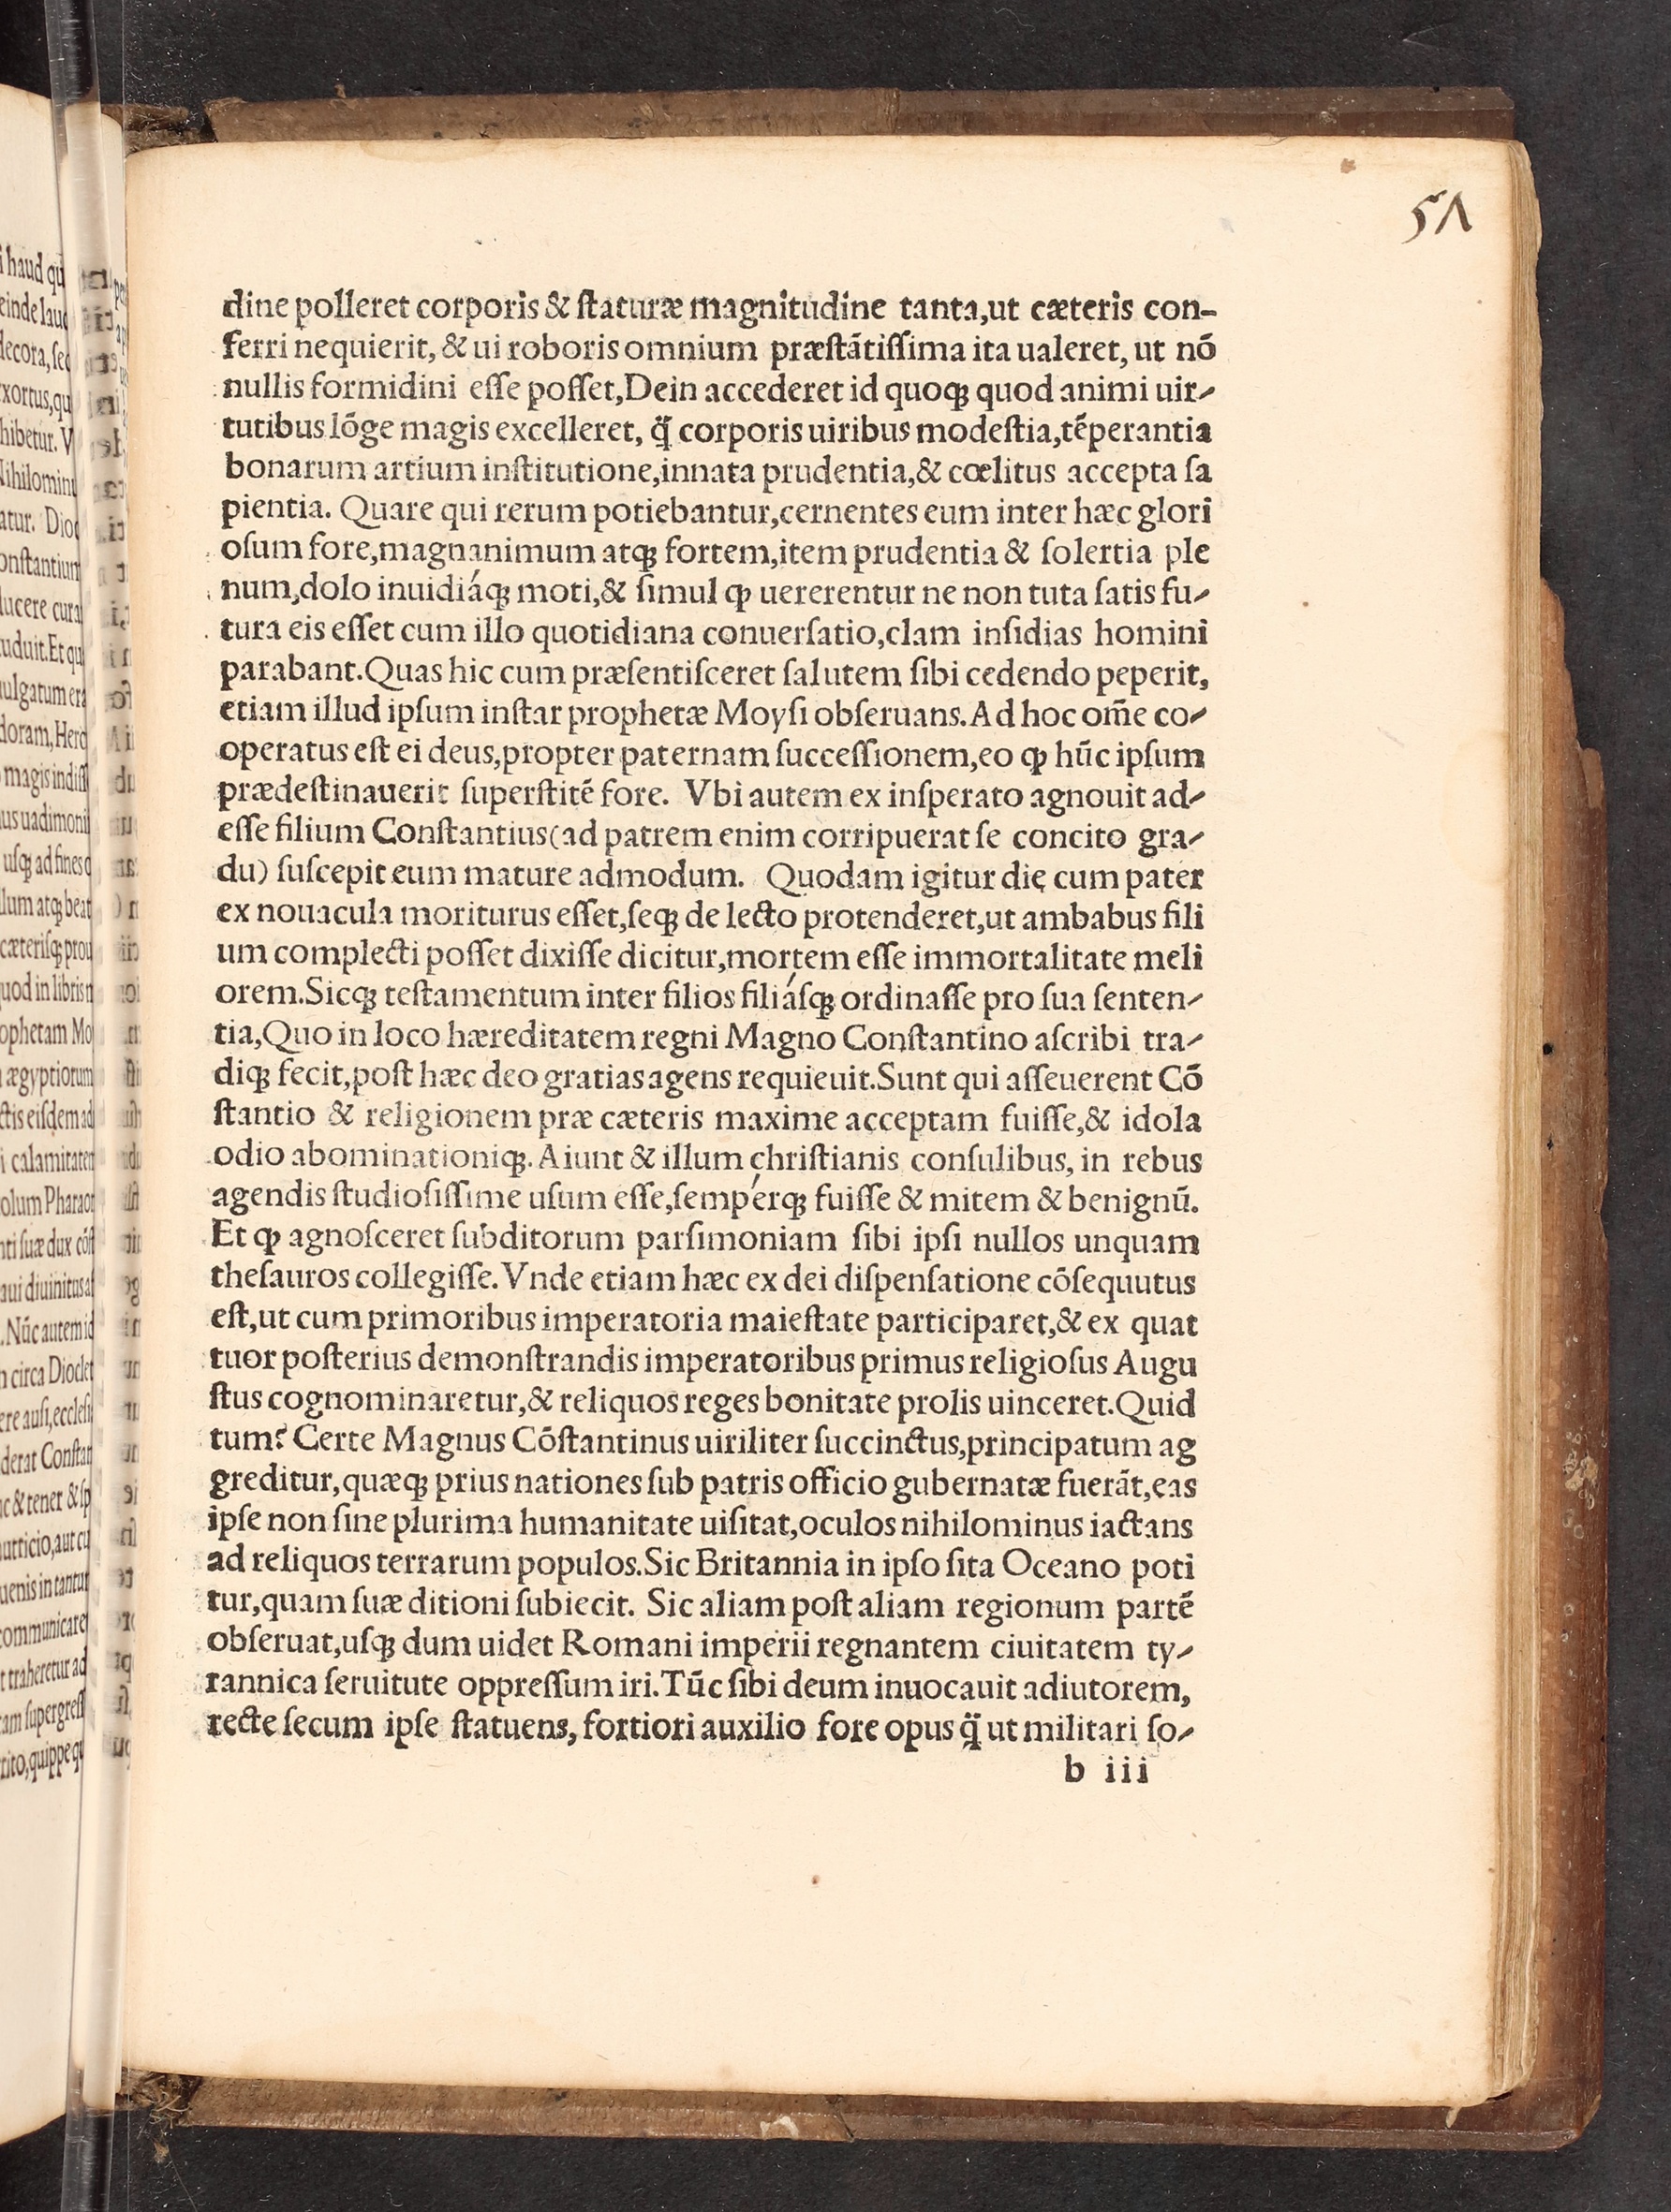 51
dine polleret corporis & ſtaturæ magnitudine tanta,ut cæteris con-
ferri nequierit, & ui roboris omnium præſtãtiſſima ita ualeret, ut nõ
nullis formidini eſſe poſſet,Dein accederet id quoqꝫ quod animi uir-
tutibus lõge magis excelleret, q̃ corporis uiribus modeſtia,tẽperantia
bonarum artium inſtitutione,innata prudentia,& cœlitus accepta ſa
pientia. Quare qui rerum potiebantur,cernentes eum inter hæc glori
oſum fore,magnanimum atqꝫ fortem,item prudentia & ſolertia ple
num,dolo inuidiáqꝫ moti,& ſimul ꝙ uererentur ne non tuta ſatis fu-
tura eis eſſet cum illo quotidiana conuerſatio,clam inſidias homini
parabant.Quas hic cum præſentiſceret ſalutem ſibi cedendo peperit,
etiam illud ipſum inſtar prophetæ Moyſi obſeruans.Ad hoc om̃e co-
operatus eſt ei deus,propter paternam ſucceſſionem,eo ꝙ hũc ipſum
prædeſtinauerit ſuperſtitẽ fore. Vbi autem ex inſperato agnouit ad-
eſſe filium Conſtantius(ad patrem enim corripuerat ſe concito gra-
du) ſuſcepit eum mature admodum. Quodam igitur die cum pater
ex nouacula moriturus eſſet,ſeqꝫ de lecto protenderet,ut ambabus fili
um complecti poſſet dixiſſe dicitur,mortem eſſe immortalitate meli
orem.Sicqꝫ teſtamentum inter filios filiáſqꝫ ordinaſſe pro ſua ſenten-
tia,Quo in loco hæreditatem regni Magno Conſtantino aſcribi tra-
diqꝫ fecit,poſt hæc deo gratias agens requieuit.Sunt qui aſſeuerent Cõ
ſtantio & religionem præ cæteris maxime acceptam fuiſſe,& idola
odio abominationiqꝫ. Aiunt & illum chriſtianis conſulibus, in rebus
agendis ſtudioſiſſime uſum eſſe,ſempérqꝫ fuiſſe & mitem & benignũ.
Et ꝙ agnoſceret ſubditorum parſimoniam ſibi ipſi nullos unquam
theſauros collegiſſe. Vnde etiam hæc ex dei diſpenſatione cõſequutus
eſt,ut cum primoribus imperatoria maieſtate participaret,& ex quat
tuor poſterius demonſtrandis imperatoribus primus religioſus Augu
ſtus cognominaretur,& reliquos reges bonitate prolis uinceret.Quid
tum? Certe Magnus Cõſtantinus uiriliter ſuccinctus,principatum ag
greditur,quæqꝫ prius nationes ſub patris officio gubernatæ fuerãt,eas
ipſe non ſine plurima humanitate uiſitat,oculos nihilominus iactans
ad reliquos terrarum populos.Sic Britannia in ipſo ſita Oceano poti
tur,quam ſuæ ditioni ſubiecit. Sic aliam poſt aliam regionum partẽ
obſeruat,uſqꝫ dum uidet Romani imperii regnantem ciuitatem ty-
rannica ſeruitute oppreſſum iri.Tũc ſibi deum inuocauit adiutorem,
recte ſecum ipſe ſtatuens, fortiori auxilio fore opus q̃ ut militari ſo-
b iii